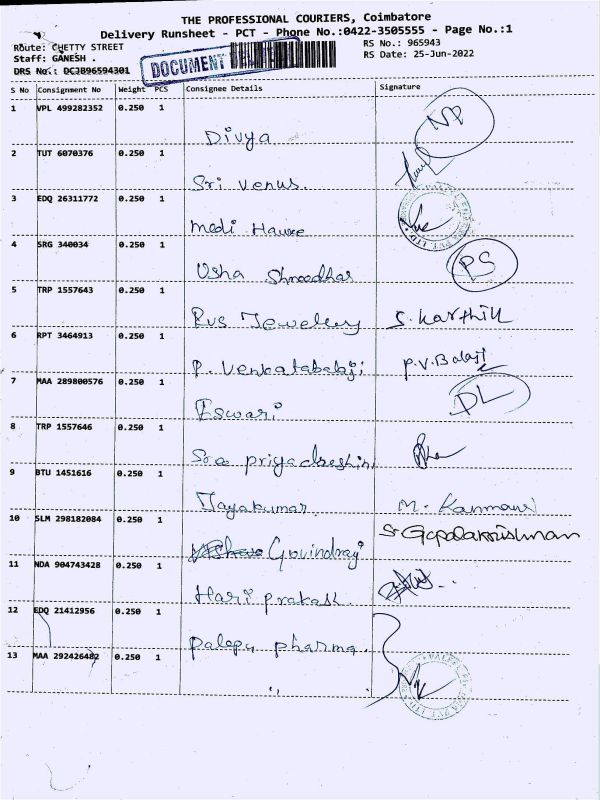 THE PROFESSIONAL COURIERS, Coimbatore
Delivery Runsheet - PCT - Phone No.:0422-3505555 - Page No.:1
Route: CHETTY STREET
RS No.: 965943
Staff: GANESH .
RS Date: 25-Jun-2022
DRS No.: DCJB96594301
DOCUMENT
S No Consignment No Weight PCS Consignee Details Signature
1 VPL 499282352 0.250 1
Divya NP
2 TUT 6070376 0.250 1
Sri Venus.
3 EDQ 26311772 0.250 1
Medi Hause
4 SRG 340034 0.250 1
Usha Shreedhar PS
5 TRP 1557643 0.250 1
Rvs Jewellery S. Karthik
6 RPT 3464913 0.250 1
P. Venkatabalaji P.V.Balaji
7 MAA 289800576 0.250 1
Eswari DL
8 TRP 1557646 0.250 1
priyadreshini
9 BTU 1451616 0.250 1
Jayakumar M. Kanmani
10 SLM 298182084 0.250 1
Govindraj Gopalakrishnan
11 NDA 904743428 0.250 1
Hari prakash
12 EDQ 21412956 0.250 1
palepu pharma.
13 MAA 292426482 0.250 1
"